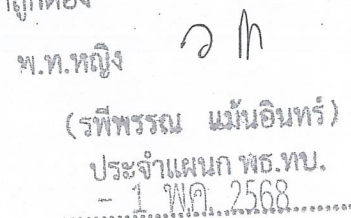 พ.ท.หญิง
(รพีพรรณ แม้นอินทร์)
ประจำแผนก พธ.ทบ.
- 1 พ.ค. 2568